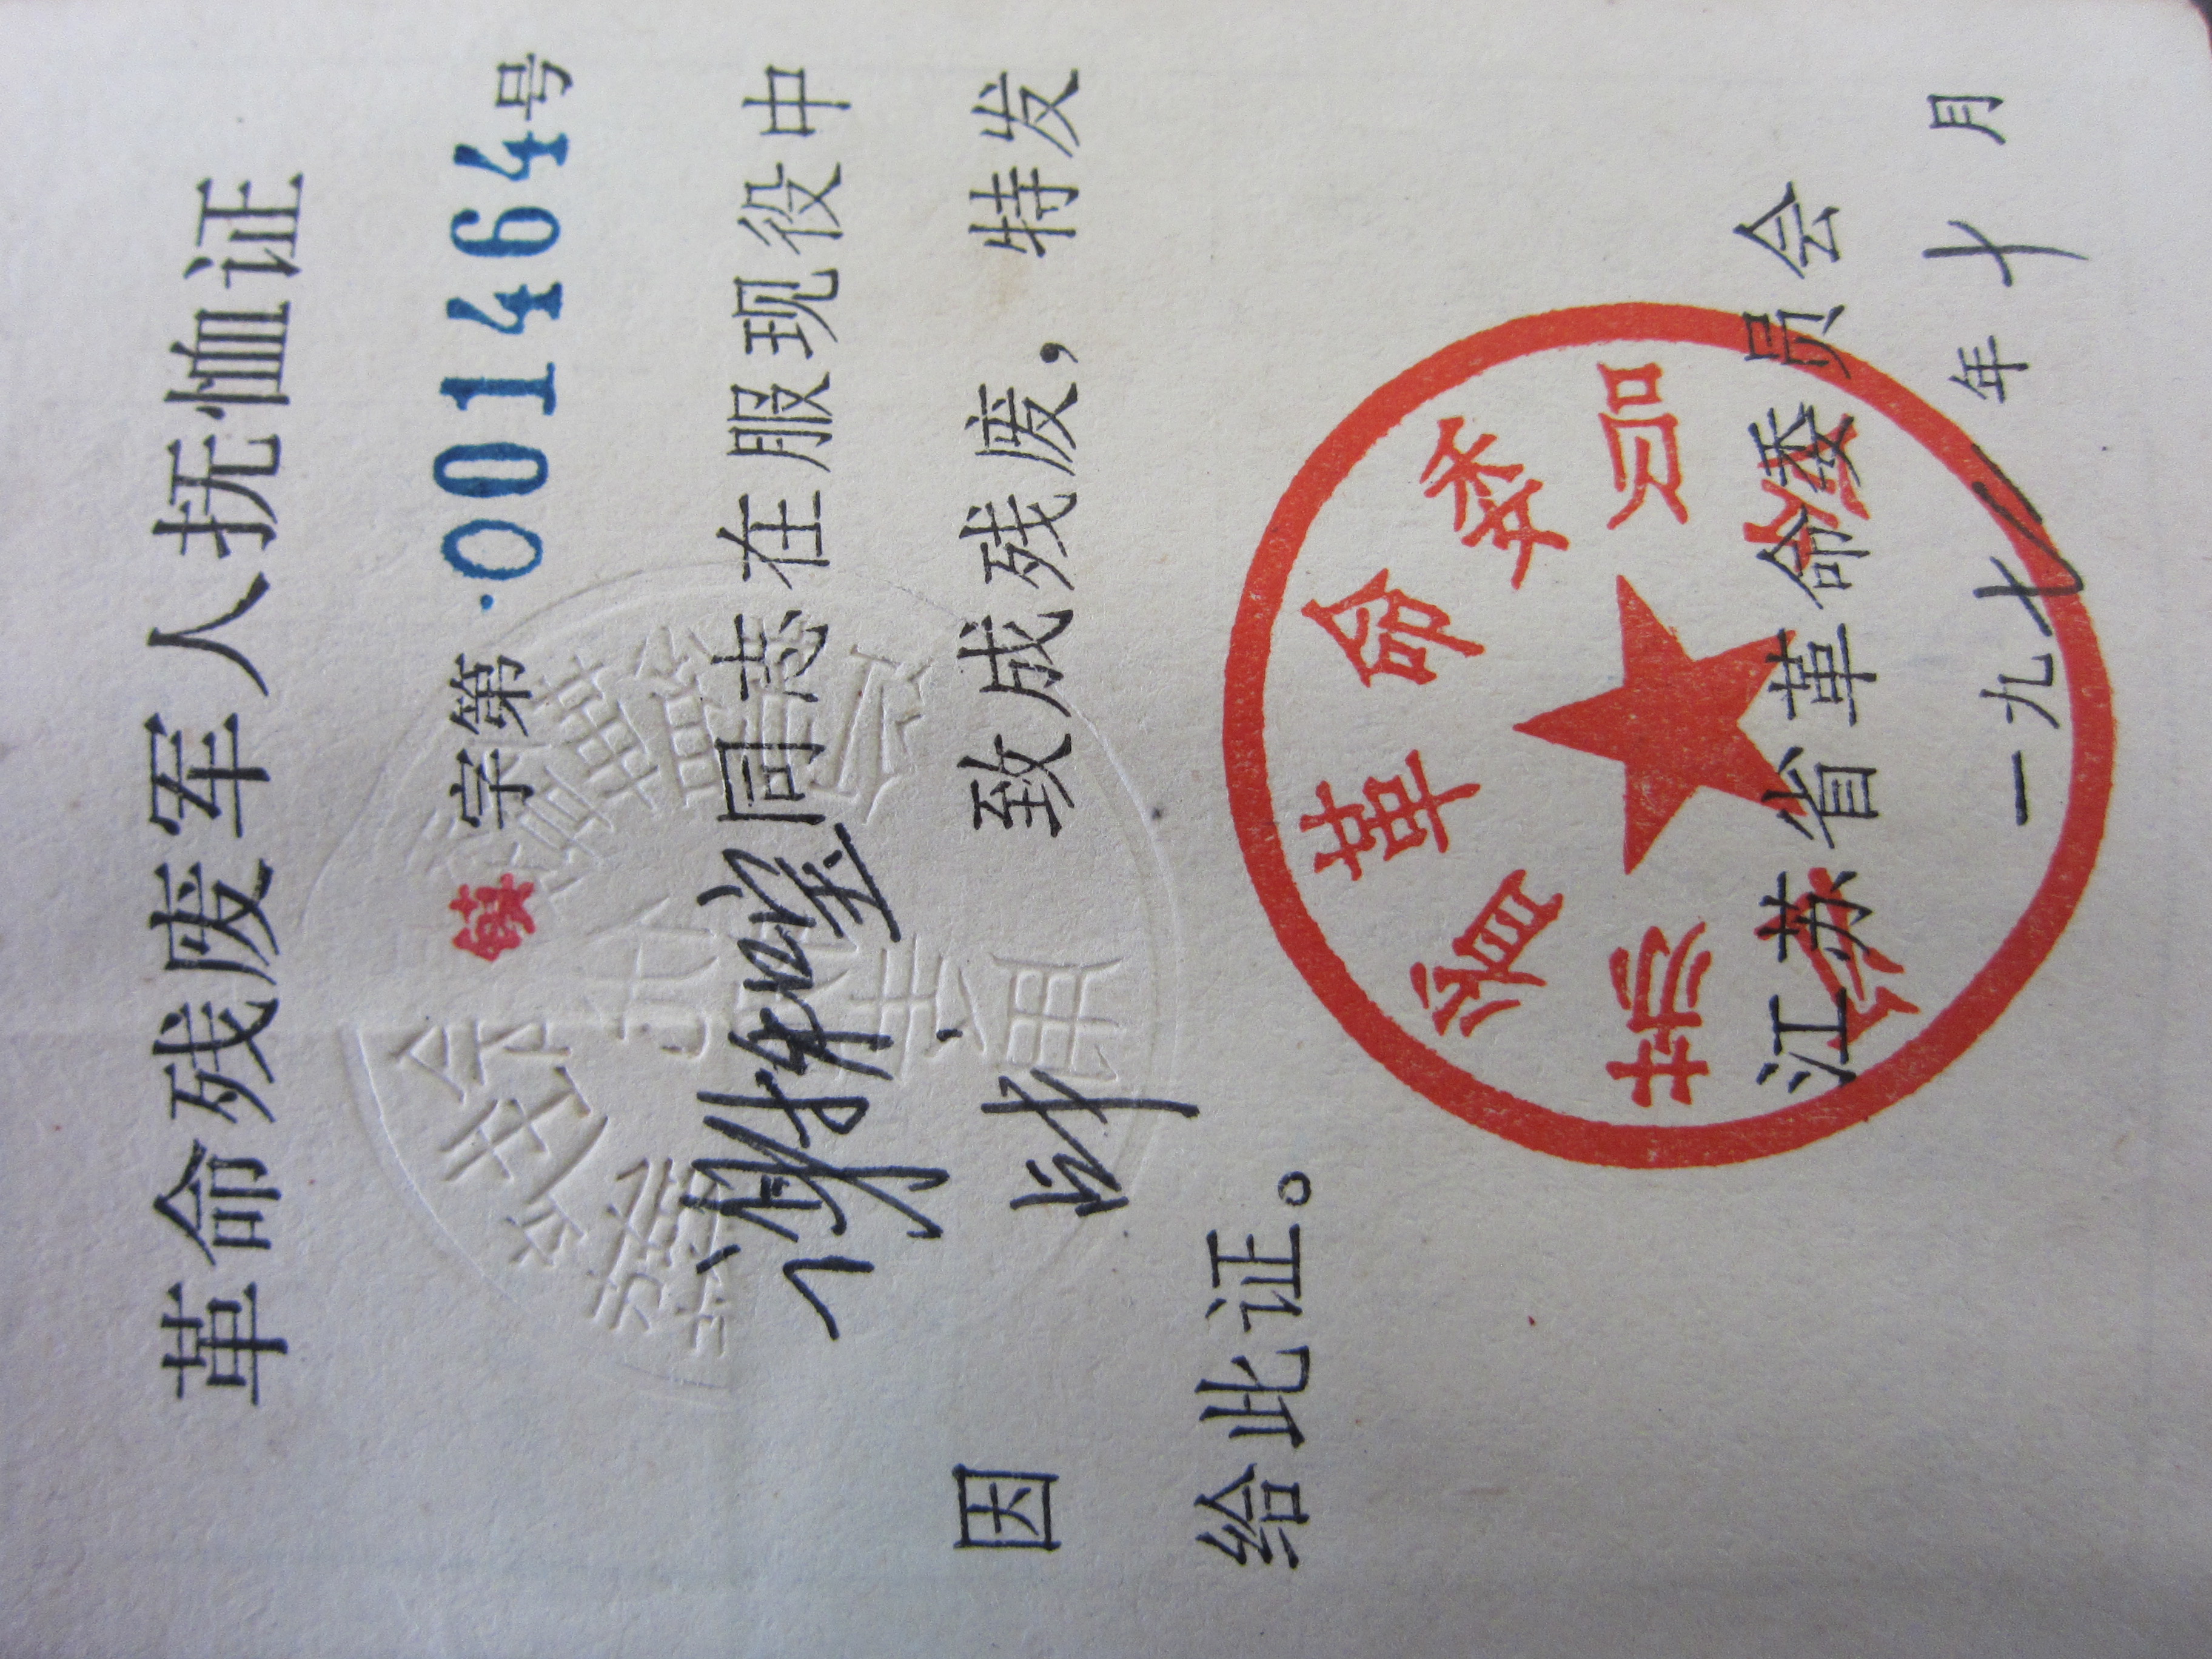 革命残废军人抚恤证
镇字第001464号
谢和宝同志在服现役中
因战致成残废，特发
给此证。
江苏省革命委员会
江苏省革命委员会
一九七一年十月